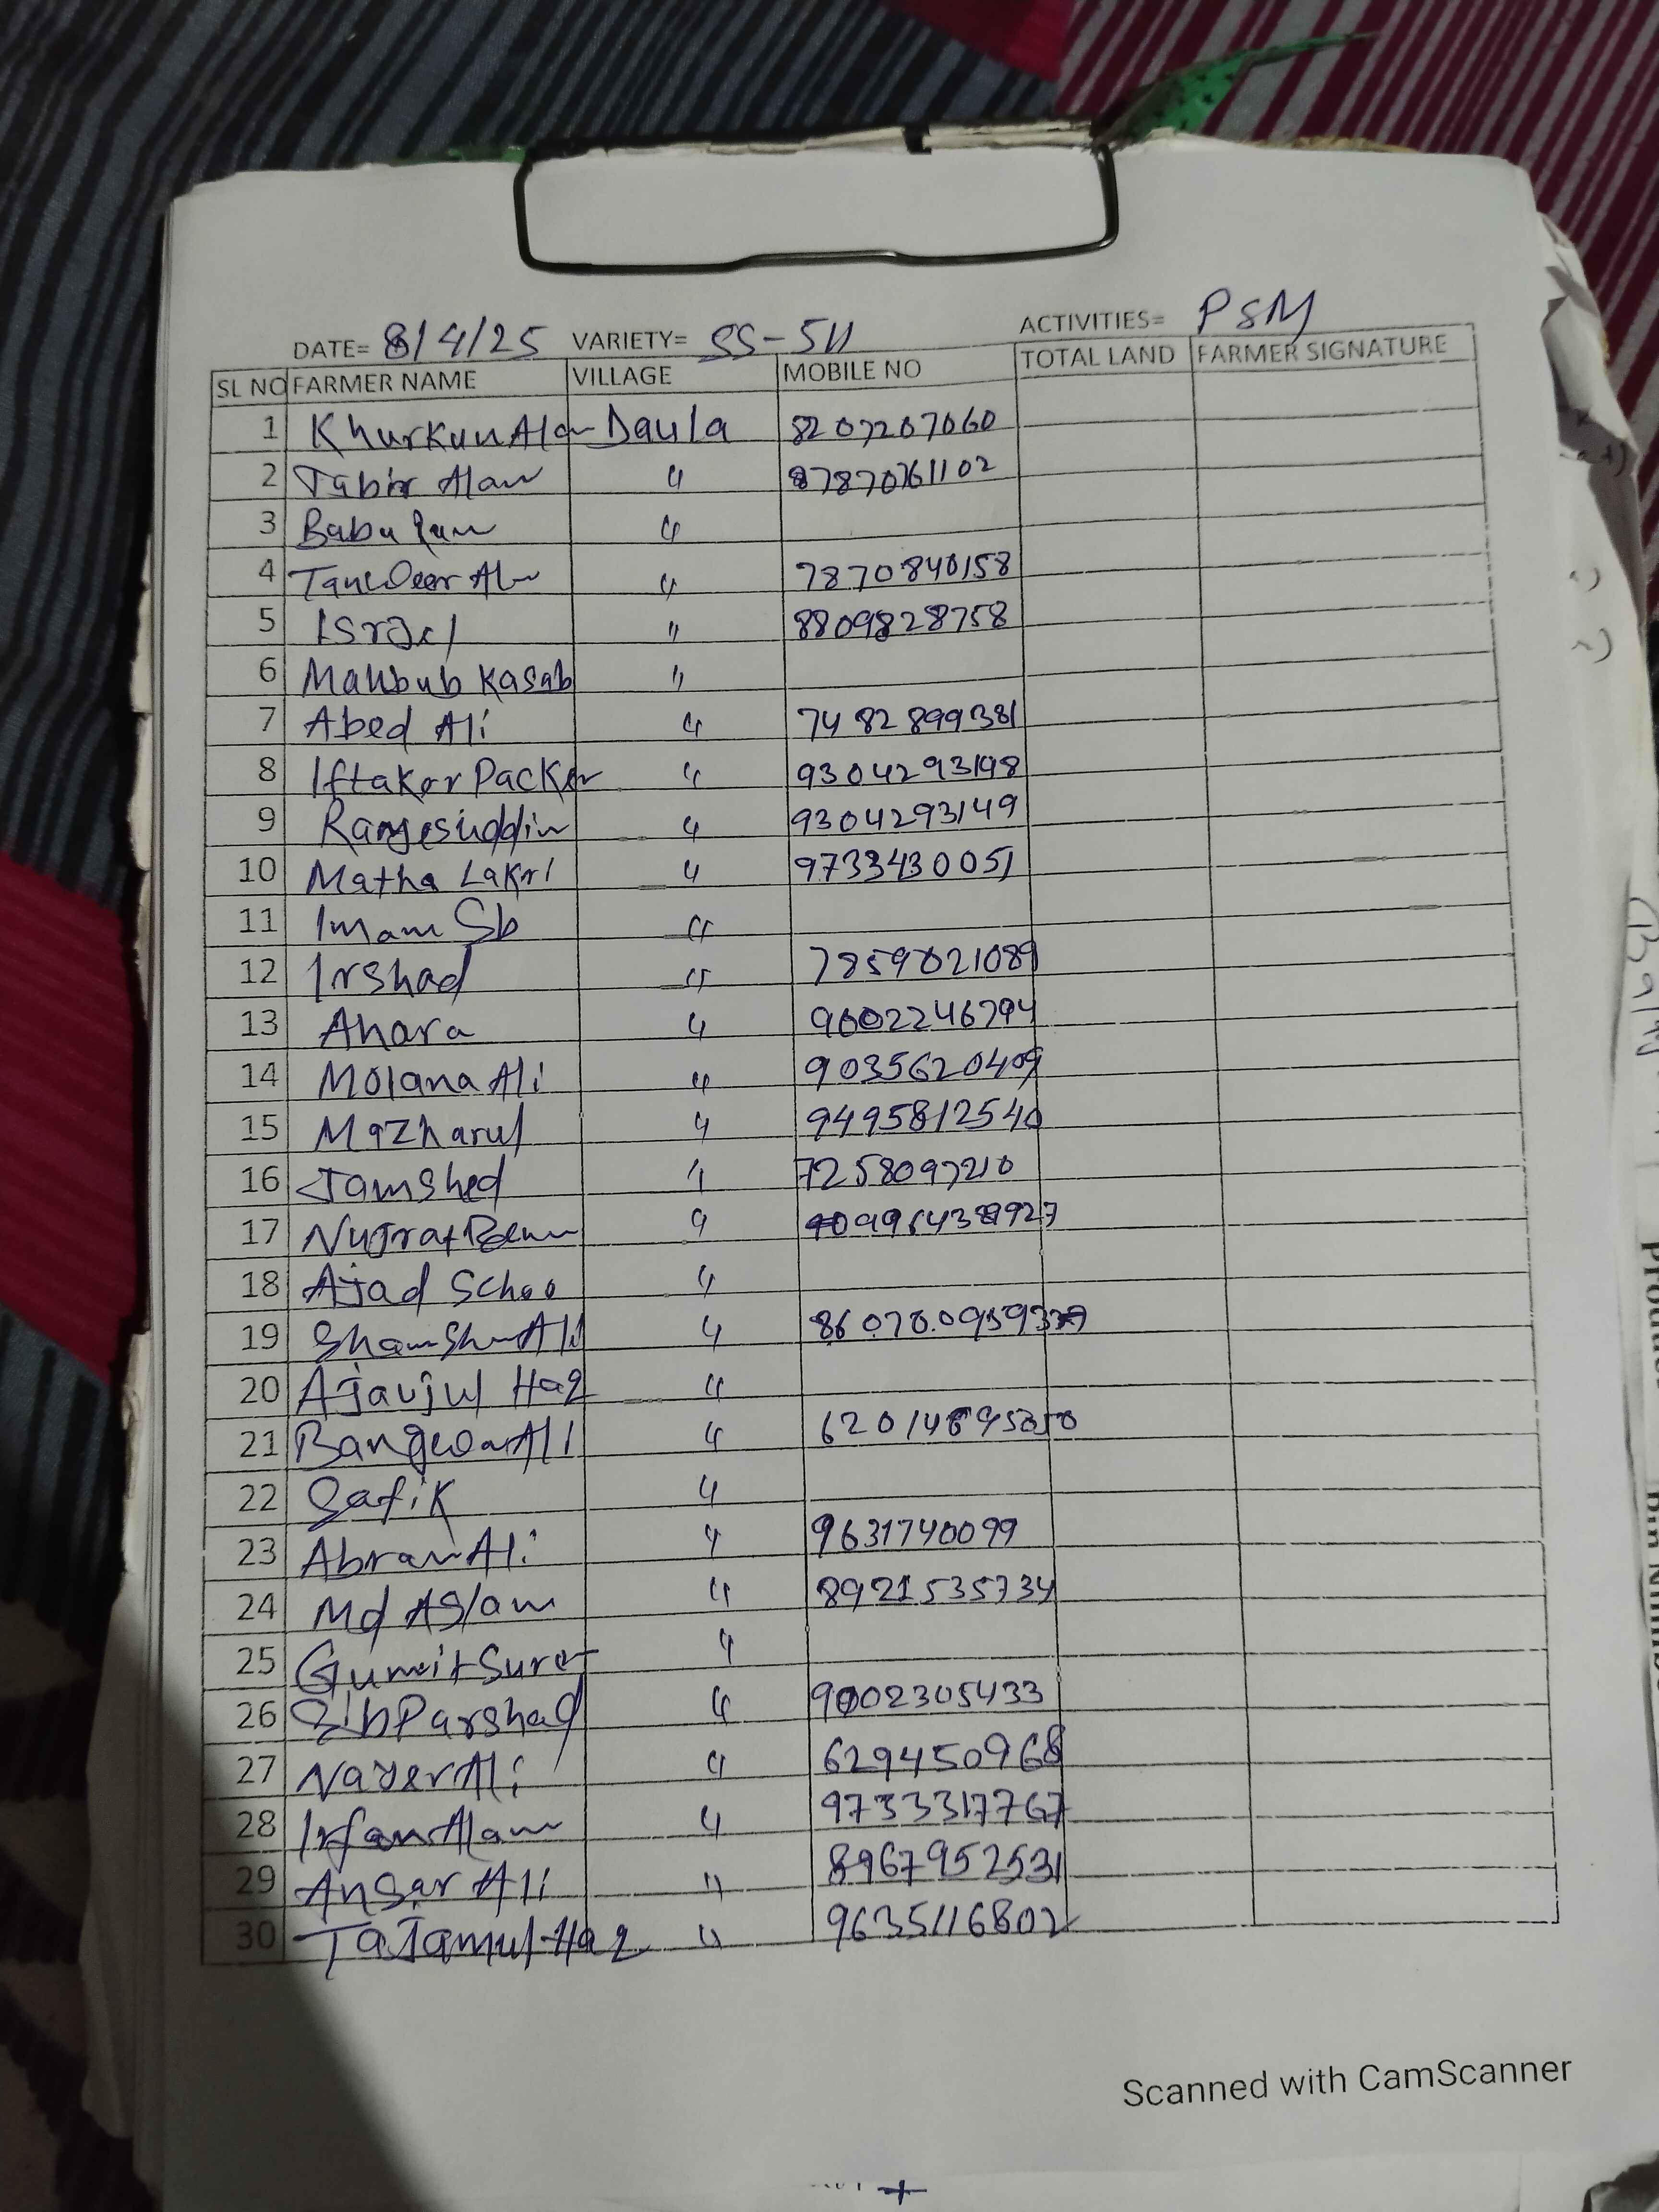 DATE= 8/4/25 VARIETY= SS-511 ACTIVITIES= PSM
SL NO FARMER NAME VILLAGE MOBILE NO TOTAL LAND FARMER SIGNATURE
1 Khurkun Alam Daula 8207207060
2 Tabir Alam " 87870761102
3 Babu Ram "
4 Tanweer Alam " 7870840158
5 Israel " 8809828758
6 Mahbub Kasab "
7 Abed Ali " 7482899381
8 Iftaker Packer " 9304293148
9 " 9304293149
10 Matha Lakri " 9733430051
11 Imam Sb "
12 Irshad " 7859021089
13 Ahara " 9602246794
14 Molana Ali " 9035620409
15 Mazharul " 9495812540
16 Jamshed " 7258097210
17 "
18 Ajad "
19 Ali "
20 Haq "
21 Ali "
22 Safik "
23 Abram Ali " 9631740099
24 Md Aslam " 8921535734
25 "
26 Sib Parshad " 9002305433
27 Nayer Ali " 629450968
28 Irfan Alam " 9733317767
29 Ansar Ali " 8967952531
30 Tajamul Haq " 9635116802
Scanned with CamScanner